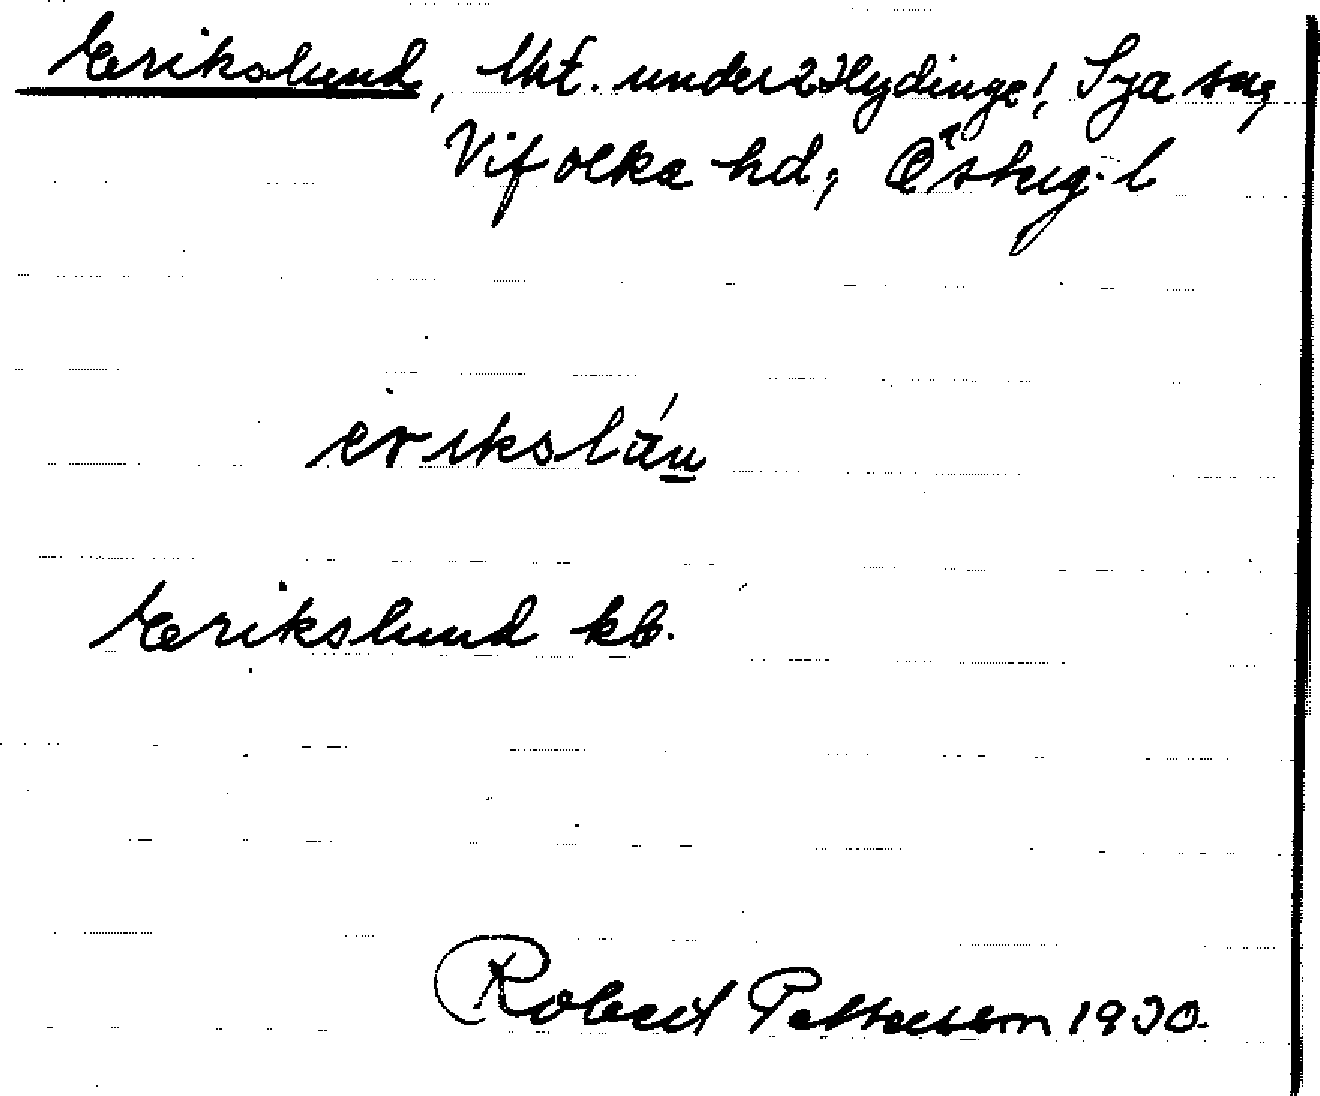 Erikslund, lht. under 2 Hydinge!, Sya sn,
Vifolka hd, Östug. l
erikslún
Erikslund kb.
Robert Pettersson 1930.